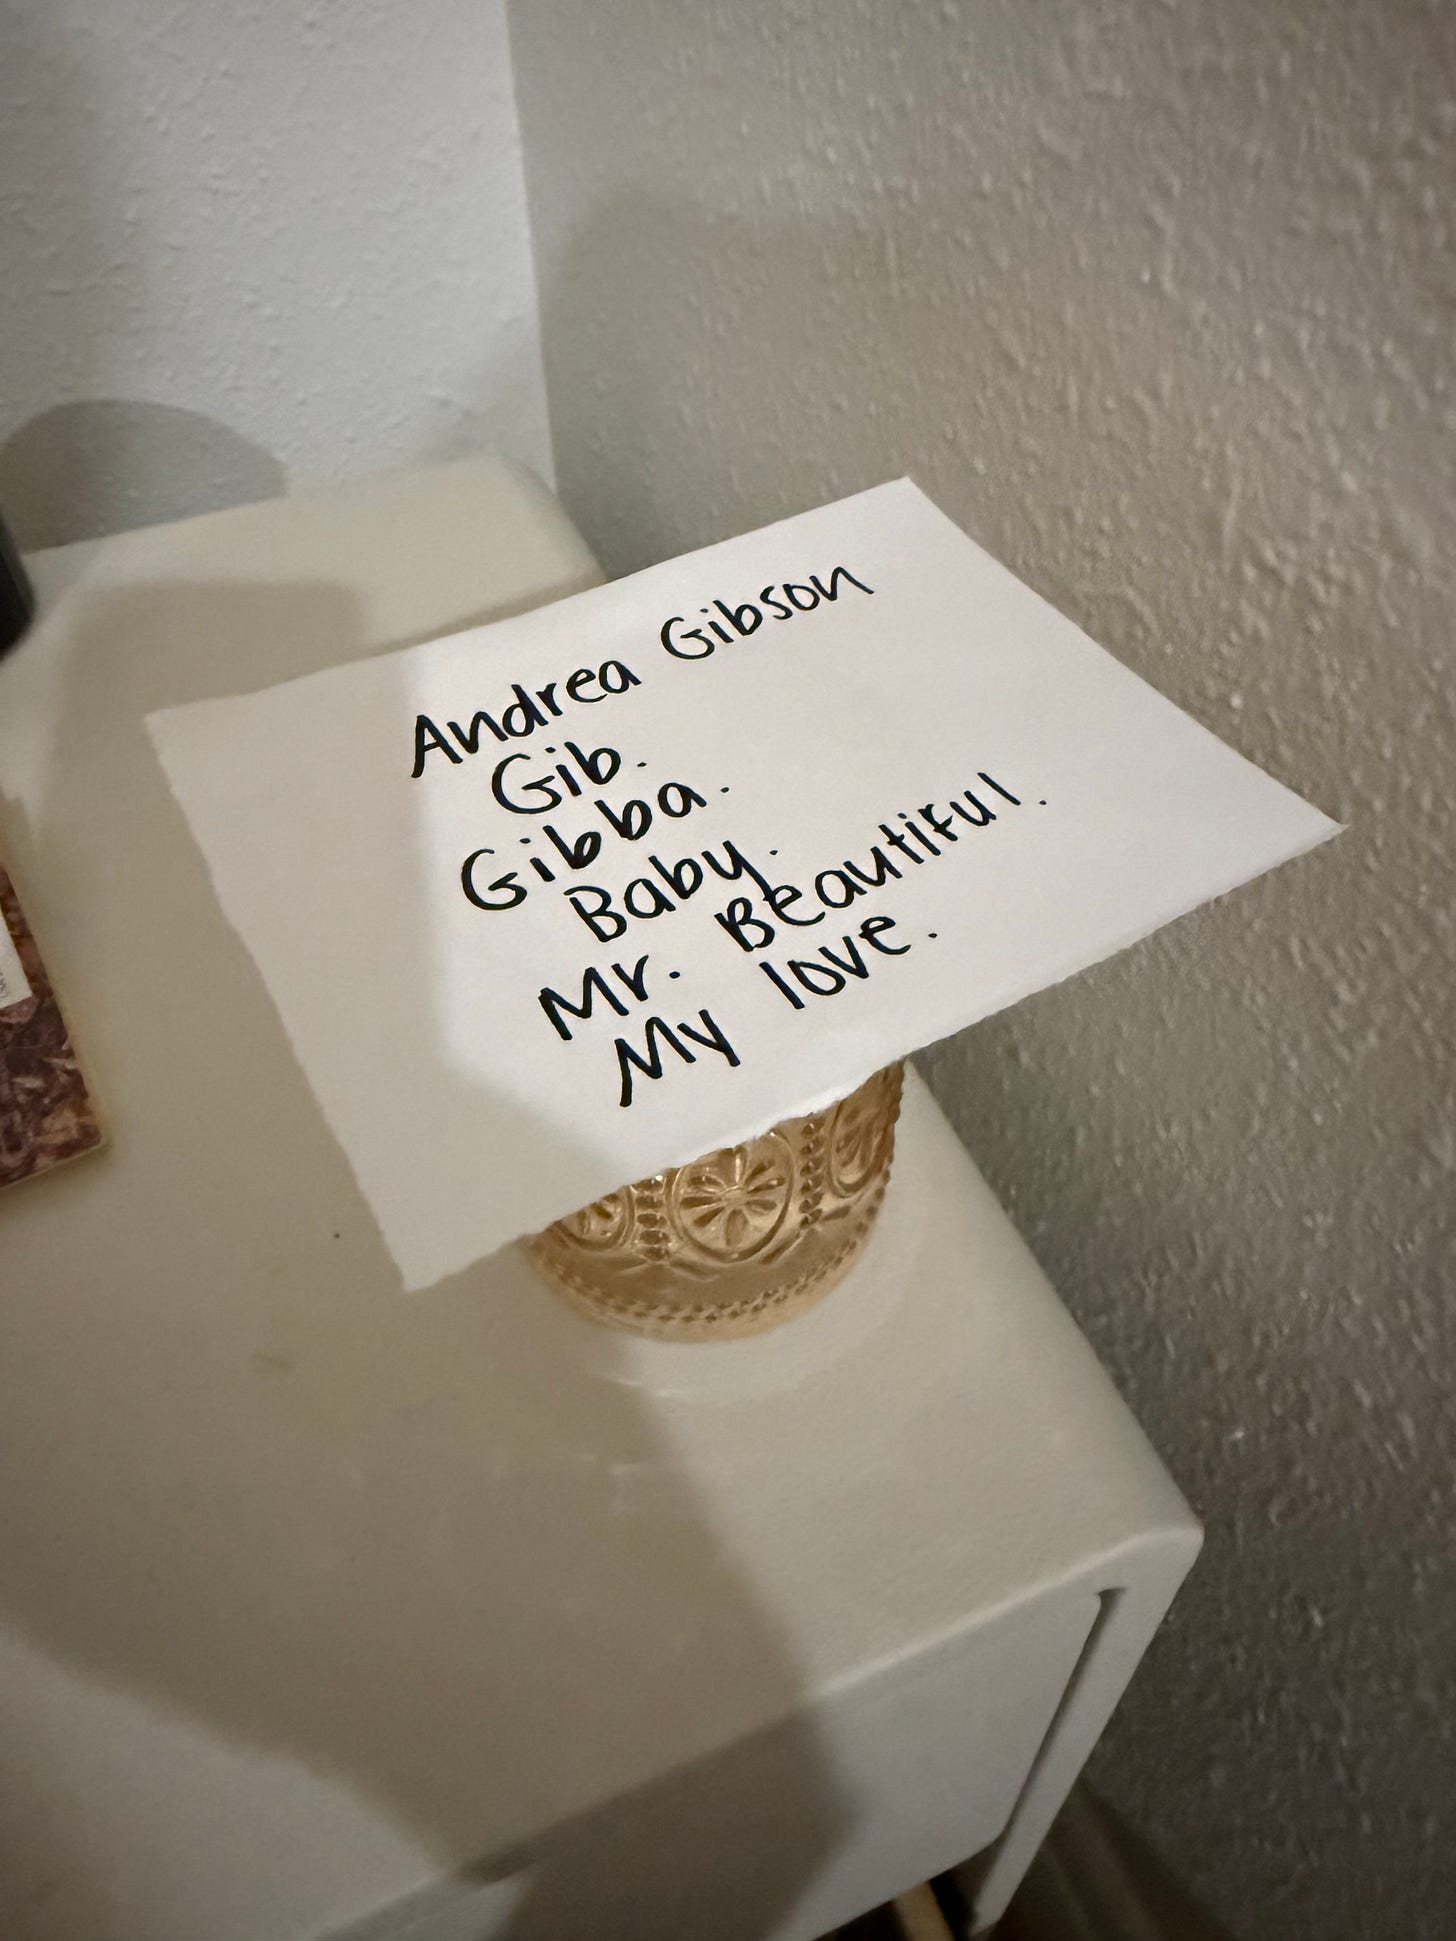 Andrea Gibson
Gib.
Gibba.
Baby.
Mr. Beautiful.
My love.